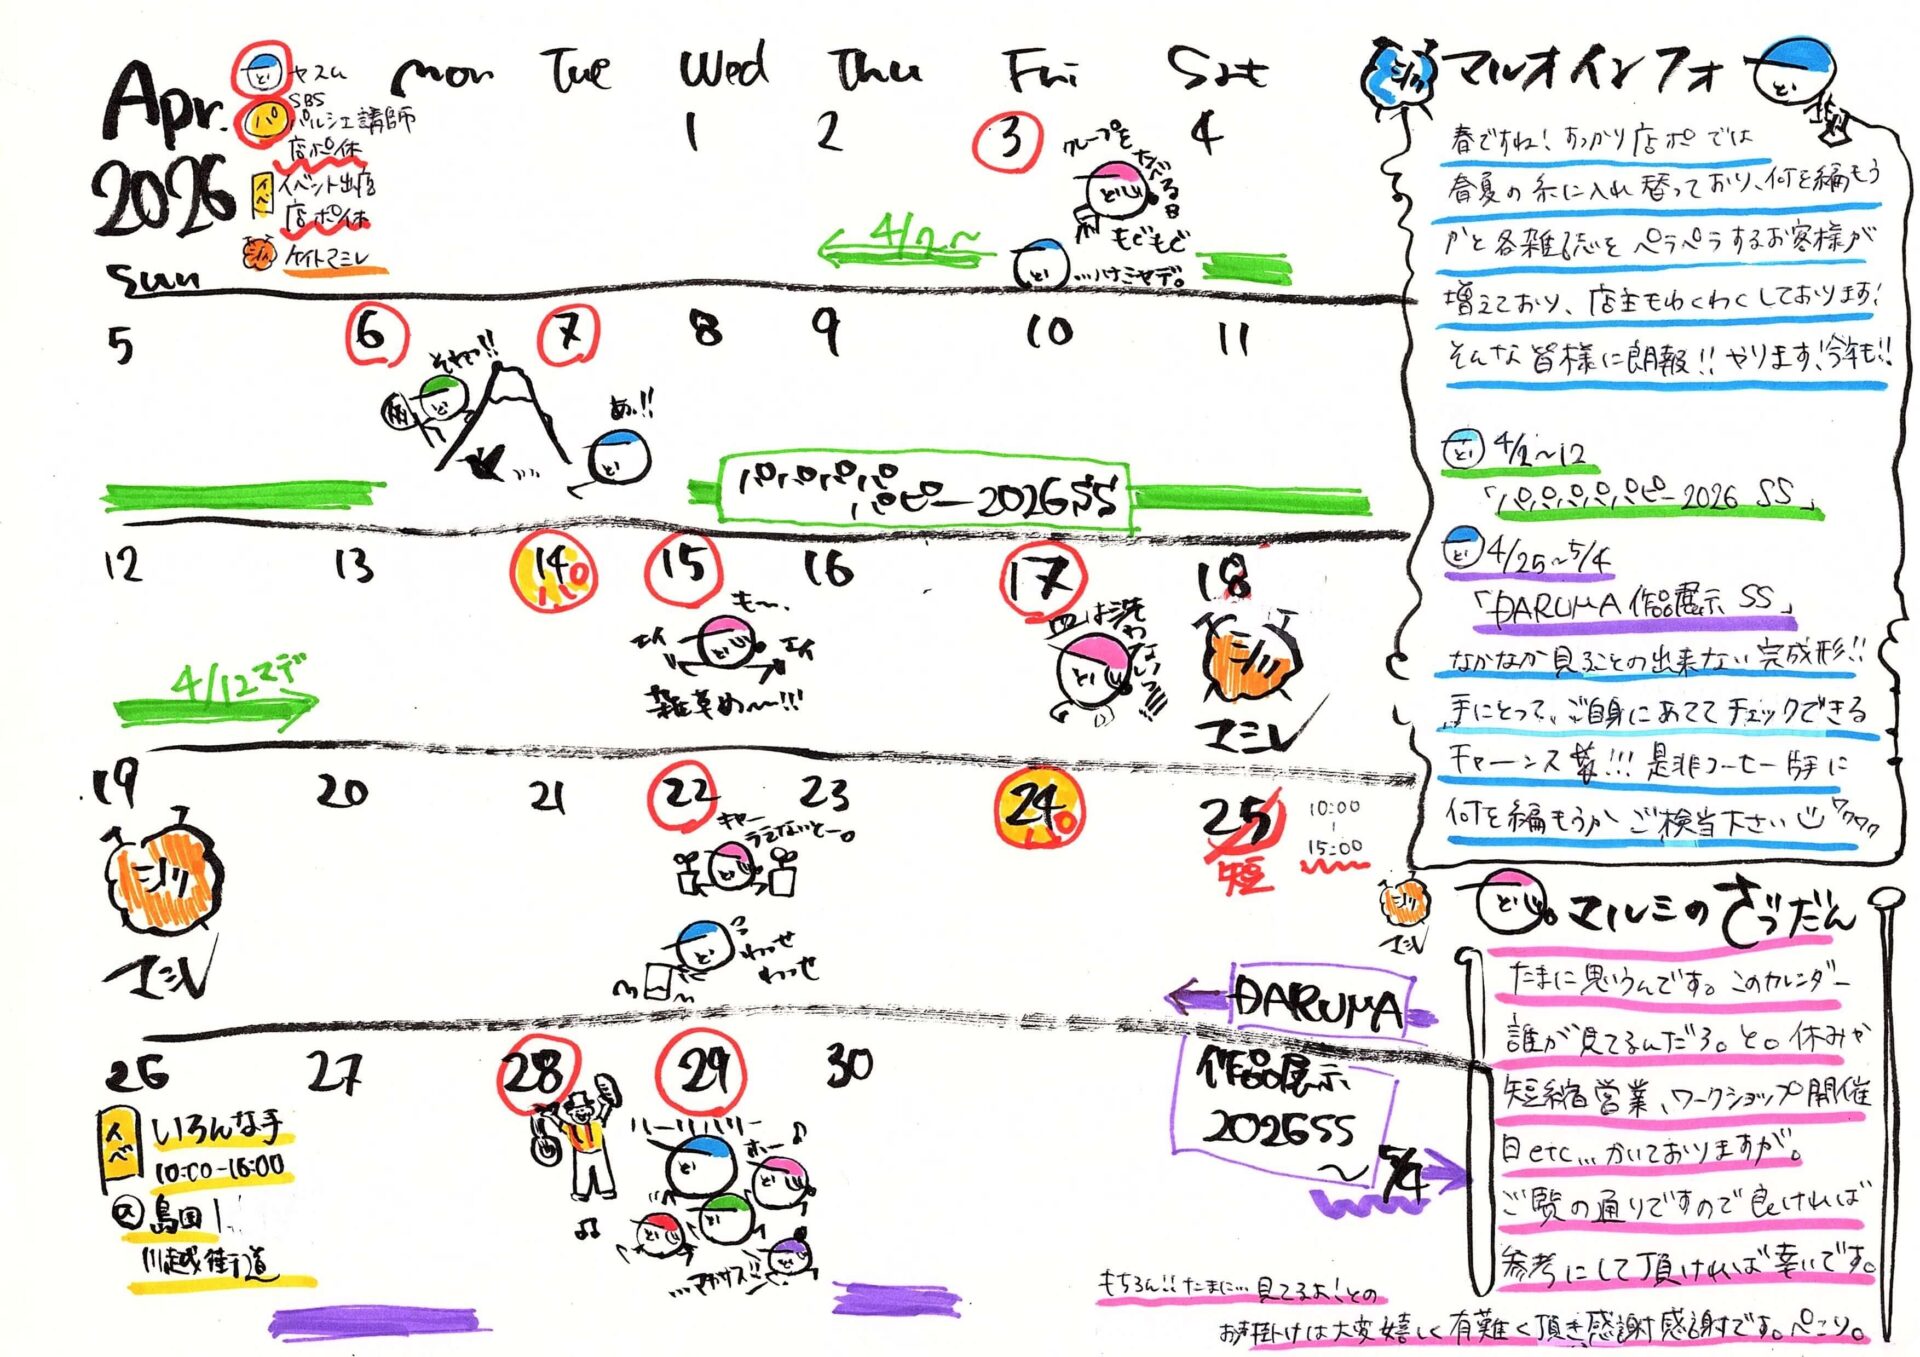 Apr.
2026
とい ヤスム
SBS
パ パルシェ講師
店ポ休
イベ イベント出店
店ポ休
ケイトマミレ
Sun
Mon Tue Wed Thu Fri Sat
1 2 3 4
クループを
もどもど
4/2~
...ハナミャデ。
5 6 7 8 9 10 11
それっ!!
あっ!!
パパパパパ
パピー2026SS
12 13 14 15 16 17 18
パ
も〜、
エイ
エイ
雑草め〜!!!
皿は洗わないっ!!!
マミレ
4/12マデ
19 20 21 22 23 24 25
短
10:00
15:00
キャー
ラえないとー。
わっせ
わっせ
マミレ
マミレ
DARUMA
作品展示
2026SS
〜5/4
26 27 28 29 30
イベ
いろんな手
10:00-16:00
島田
川越街道
ハーリバリバリー
ホー♪
...マカサス!!
マルオインフォ
春ですね!すっかり店ポでは
春夏の糸に入れ替っており、何を編もう
かと各雑誌をペラペラするお客様が
増えており、店主もわくわくしております!
そんな皆様に朗報!!やります!今年も!!
4/2~12
「パパパパパピー2026 SS」
4/25~5/4
「DARUMA作品展示 SS」
なかなか見ることの出来ない完成形!!
手にとって、ご自身にあててチェックできる
チャーンス!!!是非コーヒー片手に
何を編もうかご検当下さい ワクワク
マルミのざつだん
たまに思うんです。このカレンダー
誰が見てるんだろ。と。休みや
短縮営業、ワークショップ開催
日etc...かいておりますが。
ご覧の通りですので良ければ
参考にして頂ければ幸いです。
もちろん!!たまに...見てるよ!との
お声掛けは大変嬉しく有難く頂き感謝感謝です。ペこり。